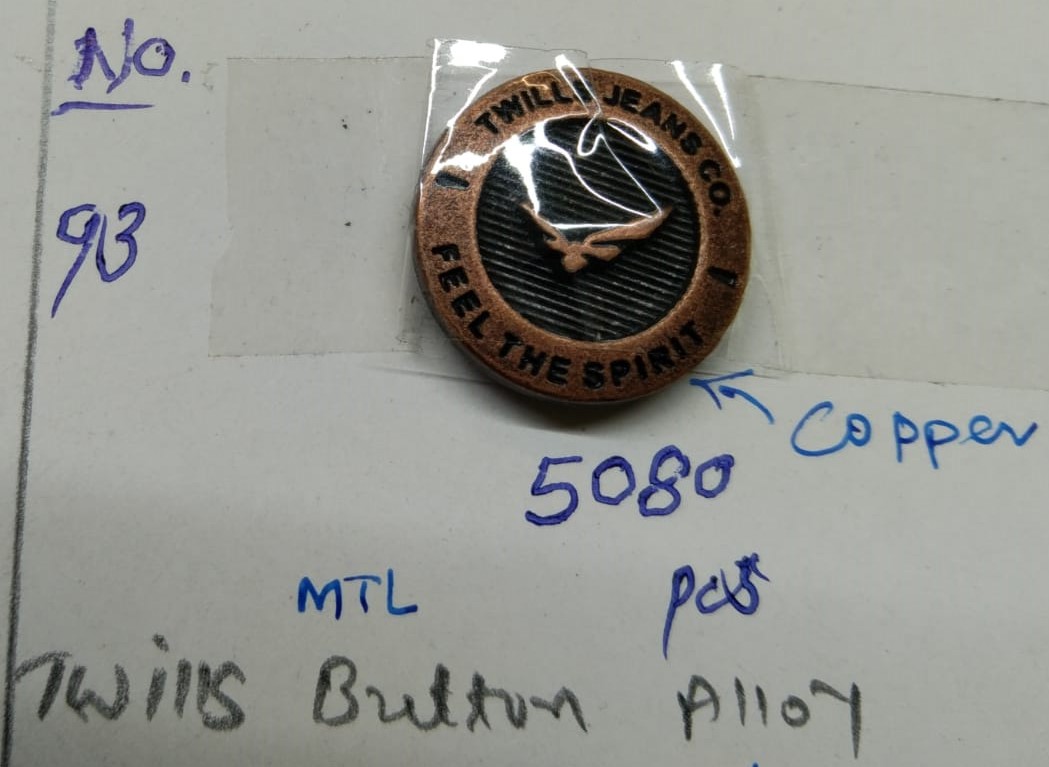 No.
93
TWILLS JEANS CO.
FEEL THE SPIRIT
Copper
5080
MTL pcs
Twills Button Alloy